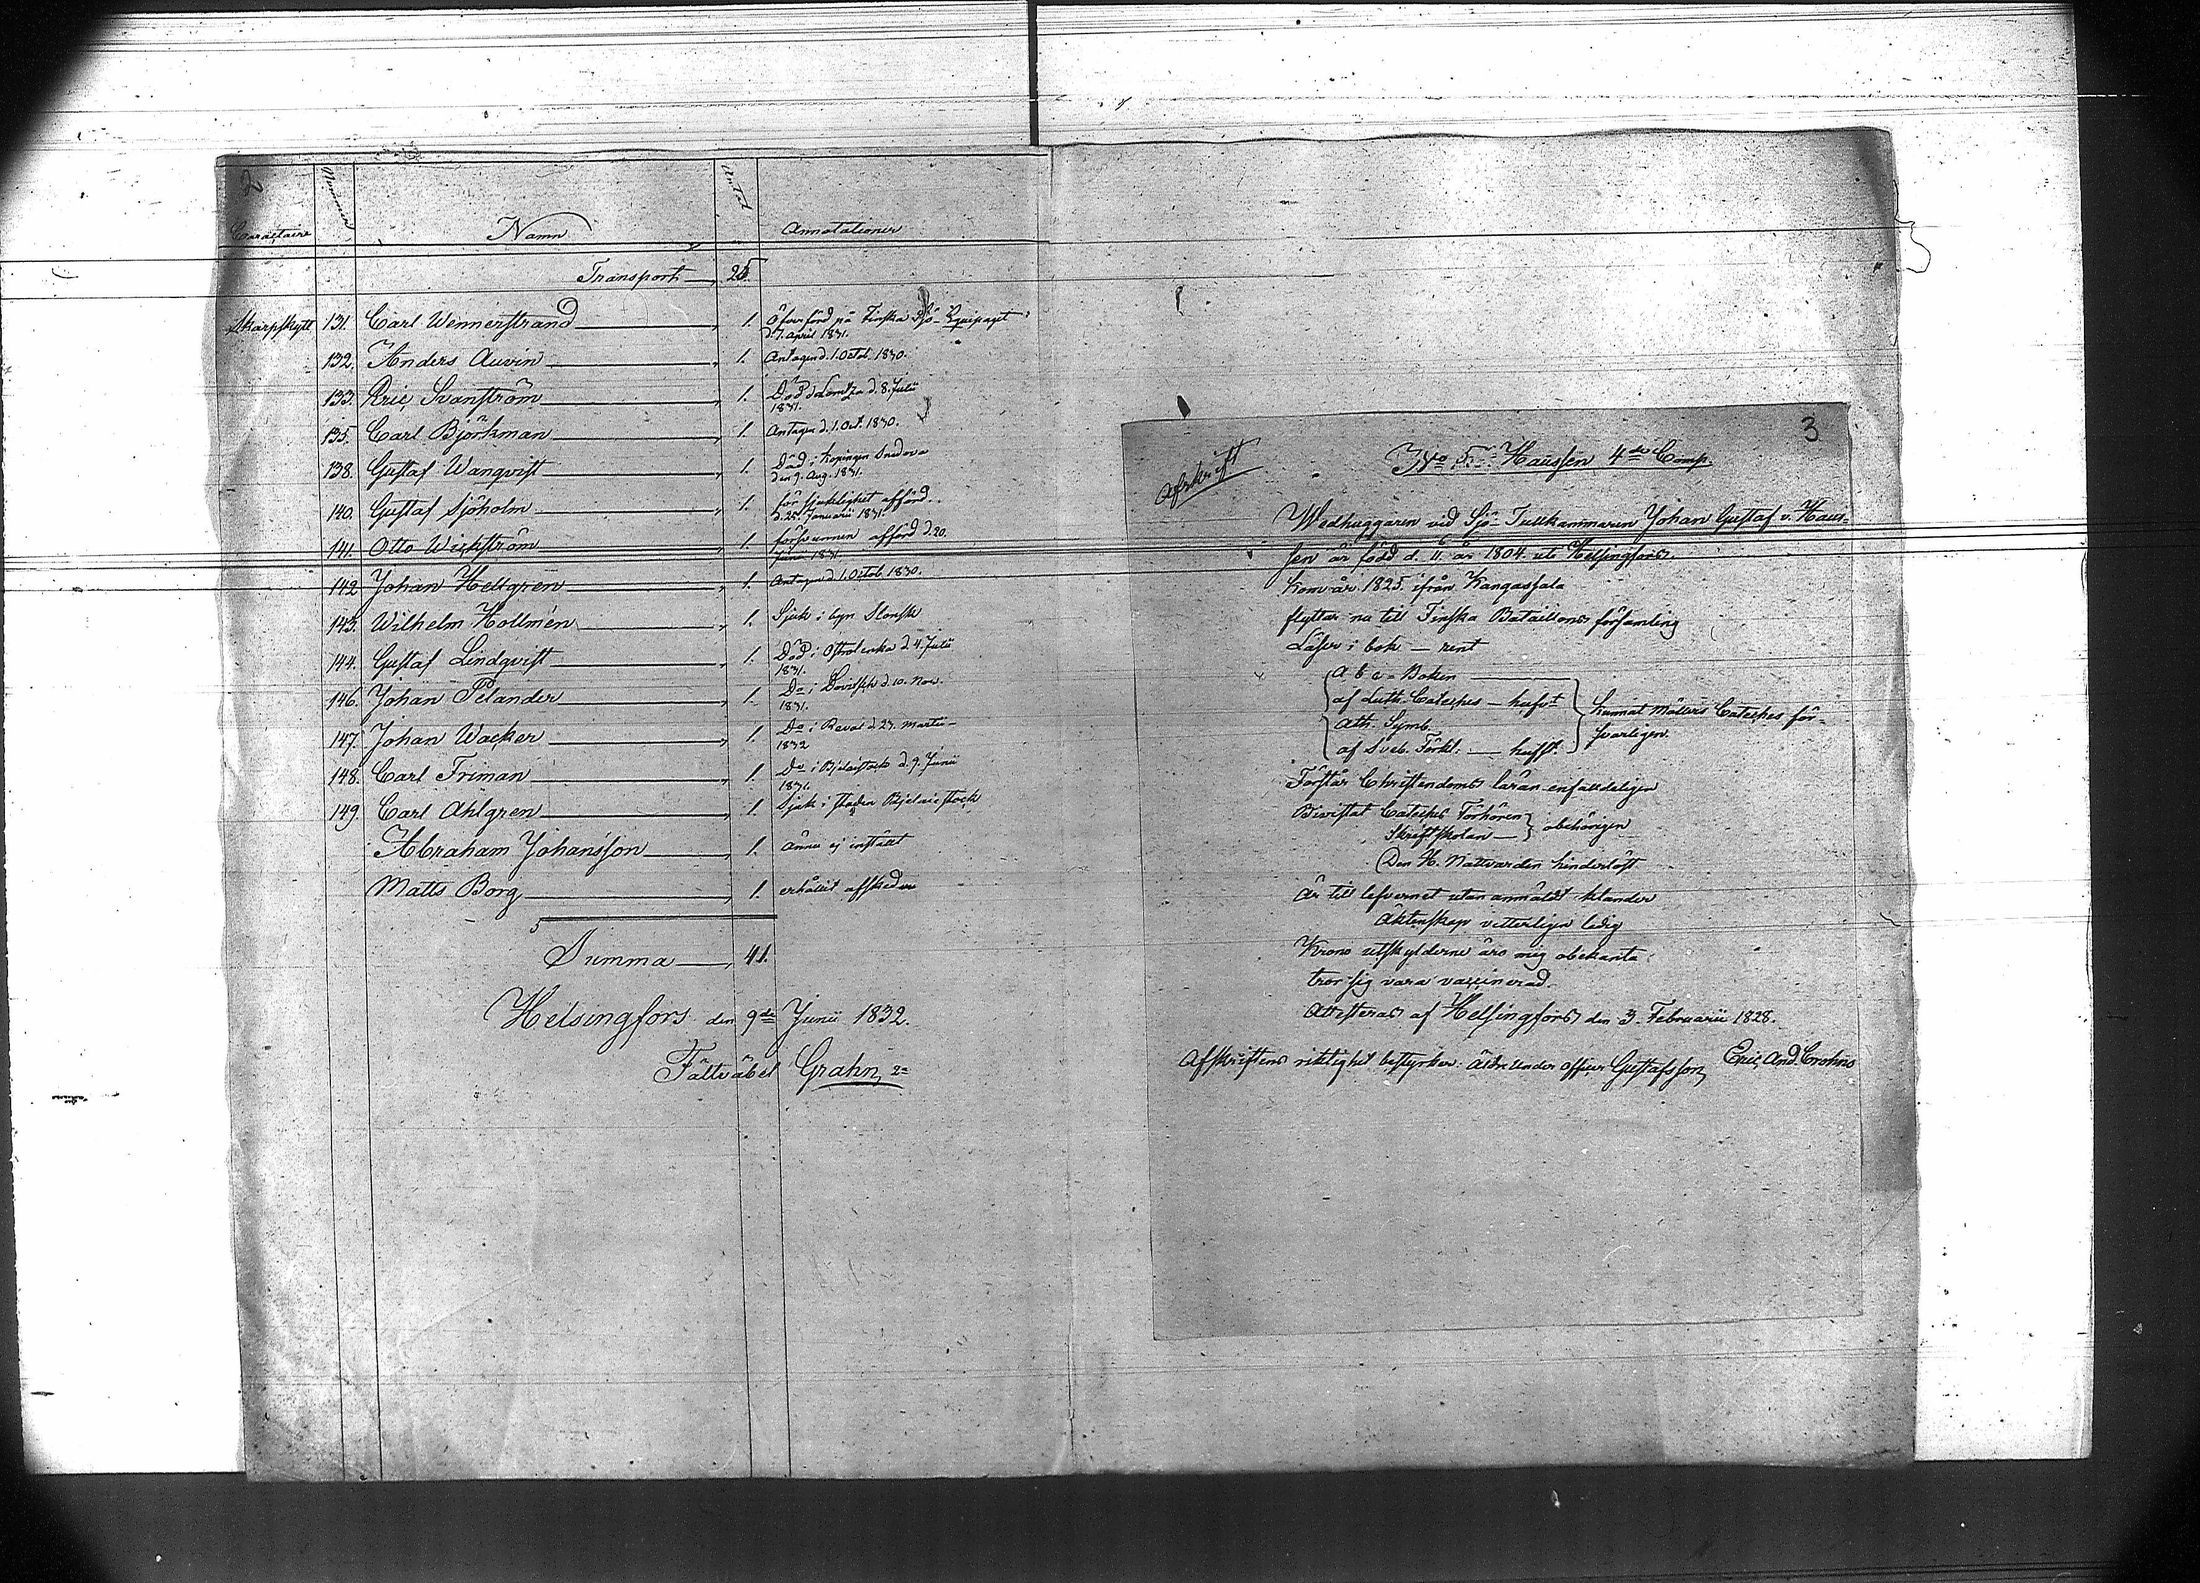 2
Caractaire Nummer Namn Antal Annotationer
Transport 25.
Skarpskytt 131. Carl Wennerstrand 1. Öfverförd på Finska Sjö-Equipaget
d. 7. April 1831.
132. Anders Auvin 1. Antagen d. 1. Octob. 1830.
133. Eric Svanström 1. Död i Lomza d. 8. Julii
1831.
135. Carl Björkman 1. Antagen d. 1. Oct. 1830.
138. Gustaf Wanqvist 1. Död i
den 9. Aug. 1831.
140. Gustaf Sjöholm 1. för sjuklighet afförd
d. 25. Januarii 1831.
141. Otto Wickström 1. försvunnen afförd d. 20.
Junii 1831.
142 Johan Hellgren 1. Antagen d. 1. Octob. 1830.
143. Wilhelm Hollmén 1. Sjuk i byn Slonsk
144. Gustaf Lindqvist 1. Död i Ostrolenka d. 4. Julii
1831.
146. Johan Pelander 1. Do i Lovitsch d. 10. Nov.
1831.
147. Johan Wacker 1. Do i Reval d. 23. Martii
1832
148. Carl Friman 1. Do i Bjelaistock d. 9. Junii
1831.
149. Carl Ahlgren 1. Sjuk i staden Bjelaistock
Abraham Johansson 1. ännu ej inställt
Matts Borg 1. erhållit afskedm
Summa 41.
Helsingfors den 9de Junii 1832.
Fältväbel Grahn
3
Afskrift
No 5. Haussen 4de Comp.
Wedhuggaren vid Sjö-Tullkammaren Johan Gustaf v. Haus-
sen är född d. 11. år 1804. uti Helsingfors.
Kom år 1825. ifrån Kangassala
flyttar nu till Finska Bataillons församling
Läser i bok — rent
A b c - Boken
af Luth. Cateches — hufvt
Ath. Symb.
af Sveb. Förkl. — hufft.
kunnat Möllers Cateches för-
svarligen.
Förstår Christendoms läran enfaldeligen
Bivistat Cateches Förhören
Skriftskolan — obehörigen
Den H. Nattvarden hinderlöst
Är till lefvernet utan anmäldt klander
Äktenskap vitterligen ledig
Krono utskylderne äro mig obekanta
tror sig vara vaccinerad.
Attesteras af Helsingfors den 3. Februarii 1828.
Eric And. Crohns
Afskriftens riktighet bestyrker: Äldre Under Officer Gustafsson